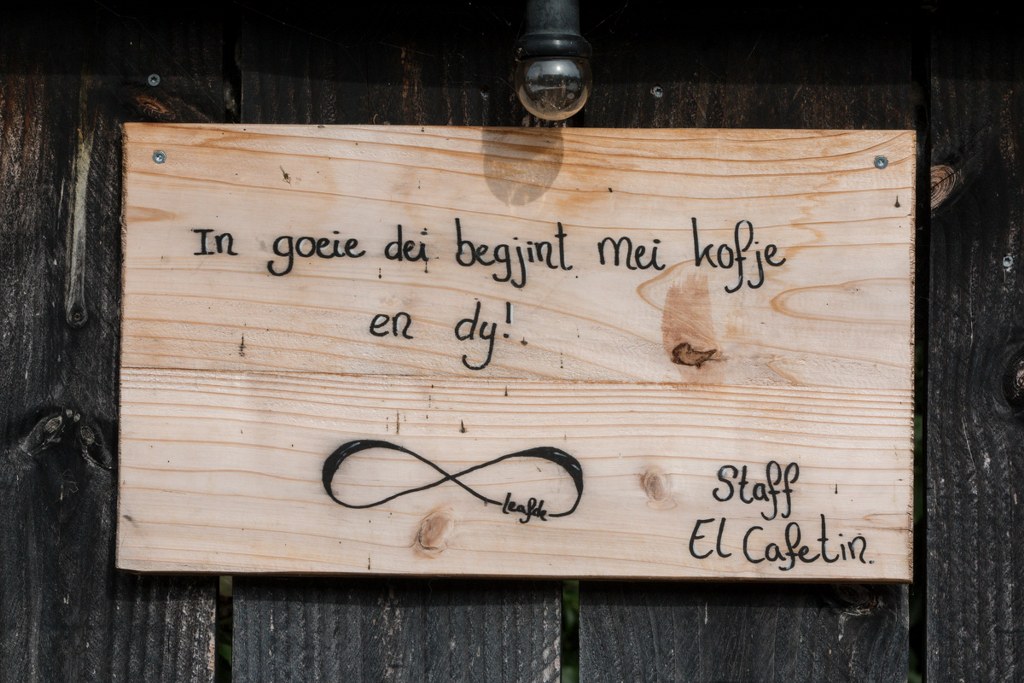 In goeie dei begjint mei kofje
en dy!
leafde
Staff
El Cafetin.